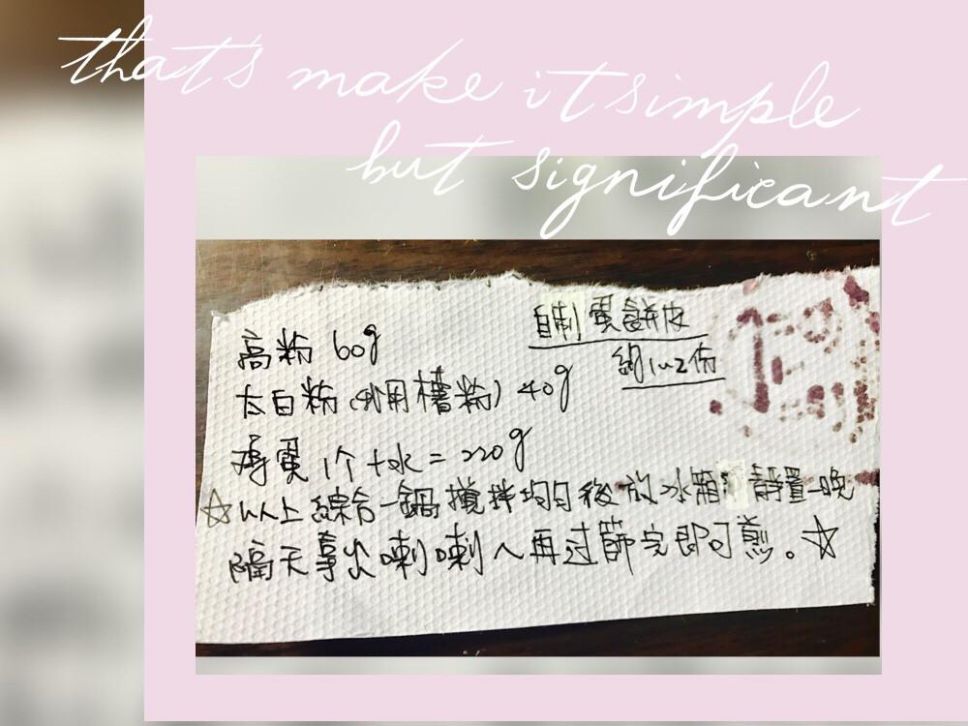 that's make it simple
but significant
自制蛋餅皮
約1~2份
高粉 60g
太白粉(我用樹薯粉) 40g
鸡蛋1个+水=220g
☆以上綜合一鍋攪拌均勻後放冰箱 靜置一晚
隔天拿出喇喇ㄟ再过篩完即可煎。☆